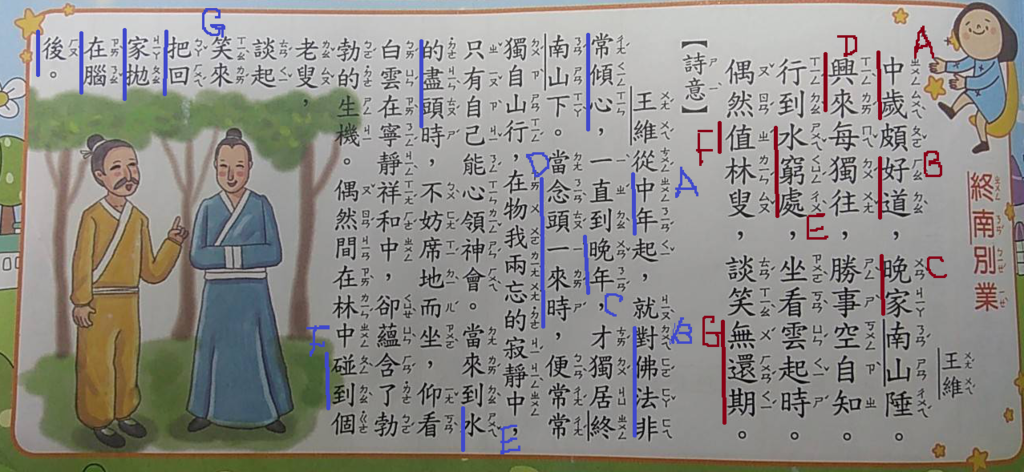 終南別業
王維
A
B
C
中歲頗好道，晚家南山陲。
D
興來每獨往，勝事空自知。
E
行到水窮處，坐看雲起時。
F
G
偶然值林叟，談笑無還期。
【詩意】
A
B
王維從中年起，就對佛法非
C
常傾心，一直到晚年，才獨居終
D
南山下。當念頭一來時，便常常
獨自山行，在物我兩忘的寂靜中，
E
只有自己能心領神會。當來到水
的盡頭時，不妨席地而坐，仰看
白雲在寧靜祥和中，卻蘊含了勃
F
勃的生機。偶然間在林中碰到個
老叟，
談起
G
笑來
把回
家拋
在腦
後。